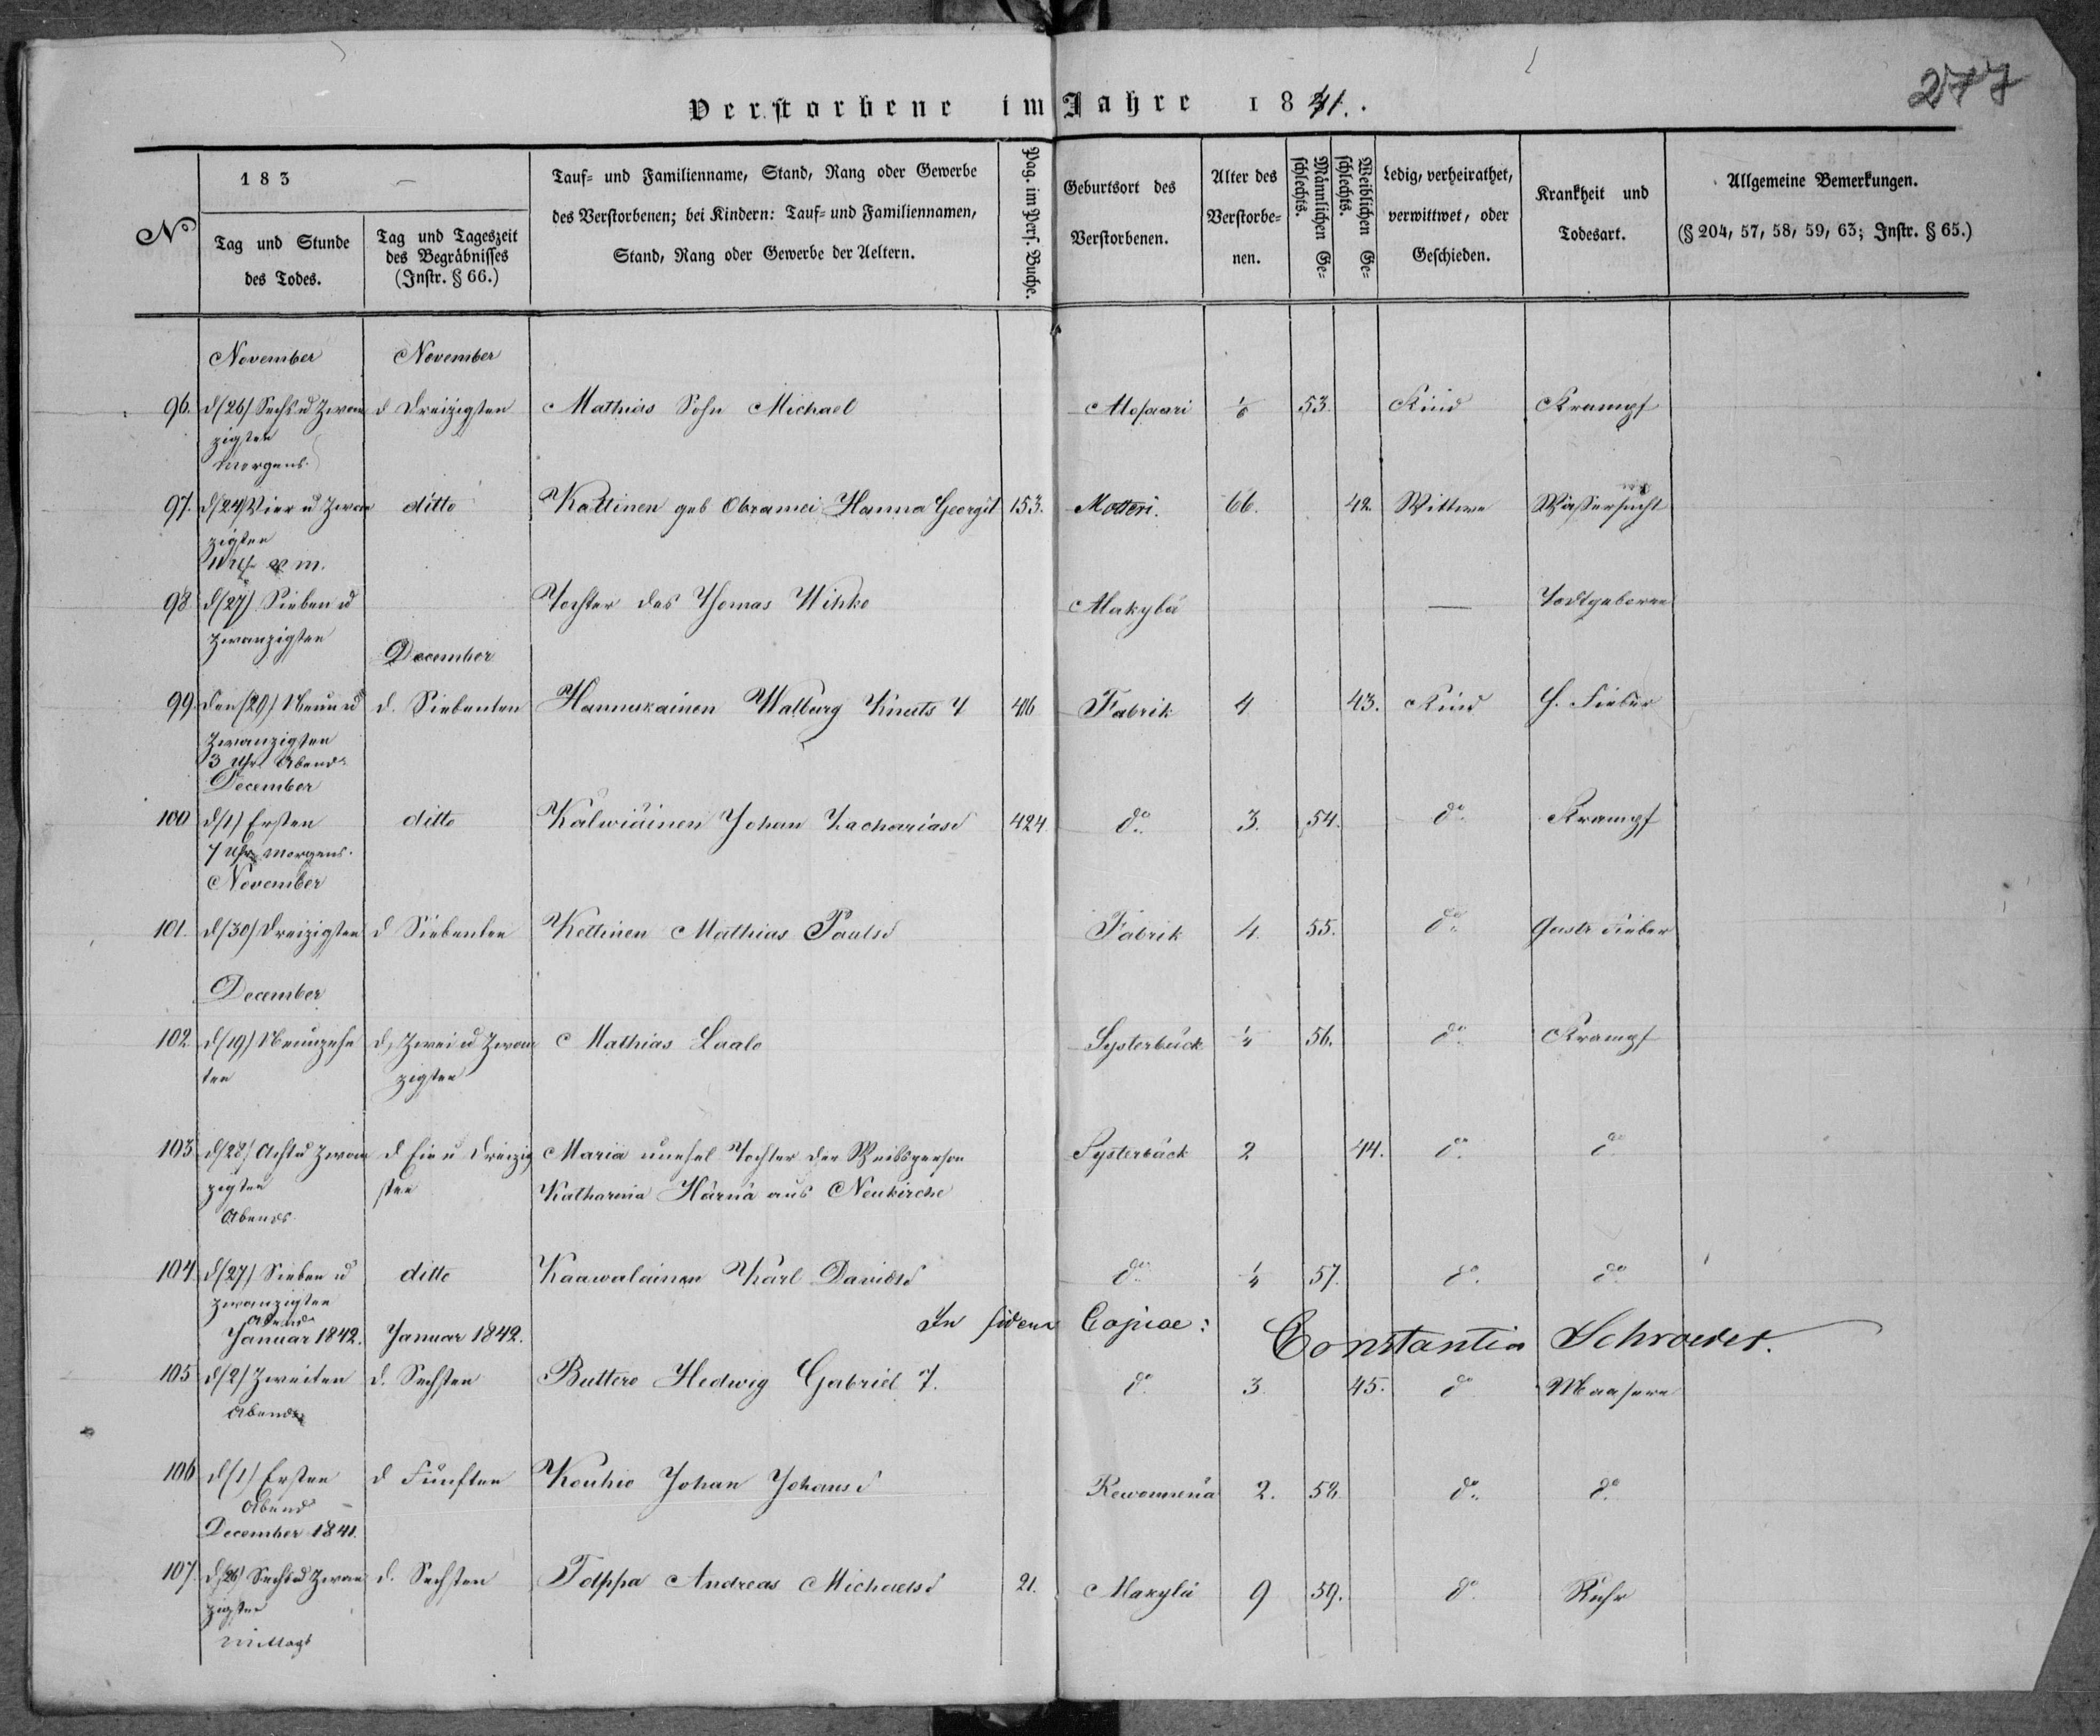 277
Verstorbene im Jahre 1841.
No
183
Tag und Stunde des Todes.
Tag und Tageszeit des Begräbnisses (Instr. § 66.)
Tauf- und Familienname, Stand, Rang oder Gewerbe
des Verstorbenen; bei Kindern: Tauf- und Familiennamen,
Stand, Rang oder Gewerbe der Aeltern.
Pag. im Pers. Buche.
Geburtsort des Verstorbenen.
Alter des Verstorbe-nen.
Männlichen Ge-schlechts.
Weiblichen Ge-schlechts.
Ledig, verheirathet, verwittwet, oder Geschieden.
Krankheit und Todesart.
Allgemeine Bemerkungen.
(§ 204, 57, 58, 59, 63; Instr. § 65.)
November November
96. d (26) Sechs u Zwan d Dreizigsten Mathias Sohn Michael 1/6 53. Kind Krampf
zigsten
Morgens.
97. d (24) Vier u Zwan ditto Kattinen geb Obramei Hanna Georg 153. Motteri. 66. 42. Wittwe Wassersucht
zigsten
98 d (27) Sieben u Tochter des Thomas Wihko Makylä — Todtgeboren
zwanzigsten
December
99. den (29) Neun u d. Siebenten Hannukainen Walburg Knuts T 416 Fabrik 4 43. Kind H. Fieber
zwanzigsten
3 Uhr Abends
December
100 d (1) Ersten ditto Kälwiäinen Johan Zachariasd 424. do 3. 54. do Krampf
7 Uhr Morgens.
November
101. d (30) Dreizigsten d Siebenten Kettinen Mathias Paulsd Fabrik 4. 55. do Gastr Fieber
December
102. d (19) Neunzehn d, Zwei u Zwan Mathias Laalo Systerbäck 1/4 56. do Krampf
ten zigsten
103 d (28) Acht u Zwan d Ein u Dreizig Maria unehel Tochter der Weibsperson Systerbäck 2 44. do do
zigsten sten Katharina Härnä aus Neukirche
Abends
104. d (27) Sieben u ditto Kaawalainen Karl Davidsd do 1/4 57. do do
zwanzigsten
Abends
In fidem Copiae: Constantin Schroeder.
Januar 1842. Januar 1842.
105 d (2) Zweiten d. Sechsten Buttere Hedwig Gabriel T. do 3. 45. do Maasern
Abends
106 d (1) Ersten d Fünften Kouhio Johan Johansd 2. 58. do do
Abend
December 1841.
107. d (26) Sechs u Zwan d. Sechsten Tolppa Andreas Michaelsd 21. Makylä 9 59. do Ruhr
zigsten
Mittags